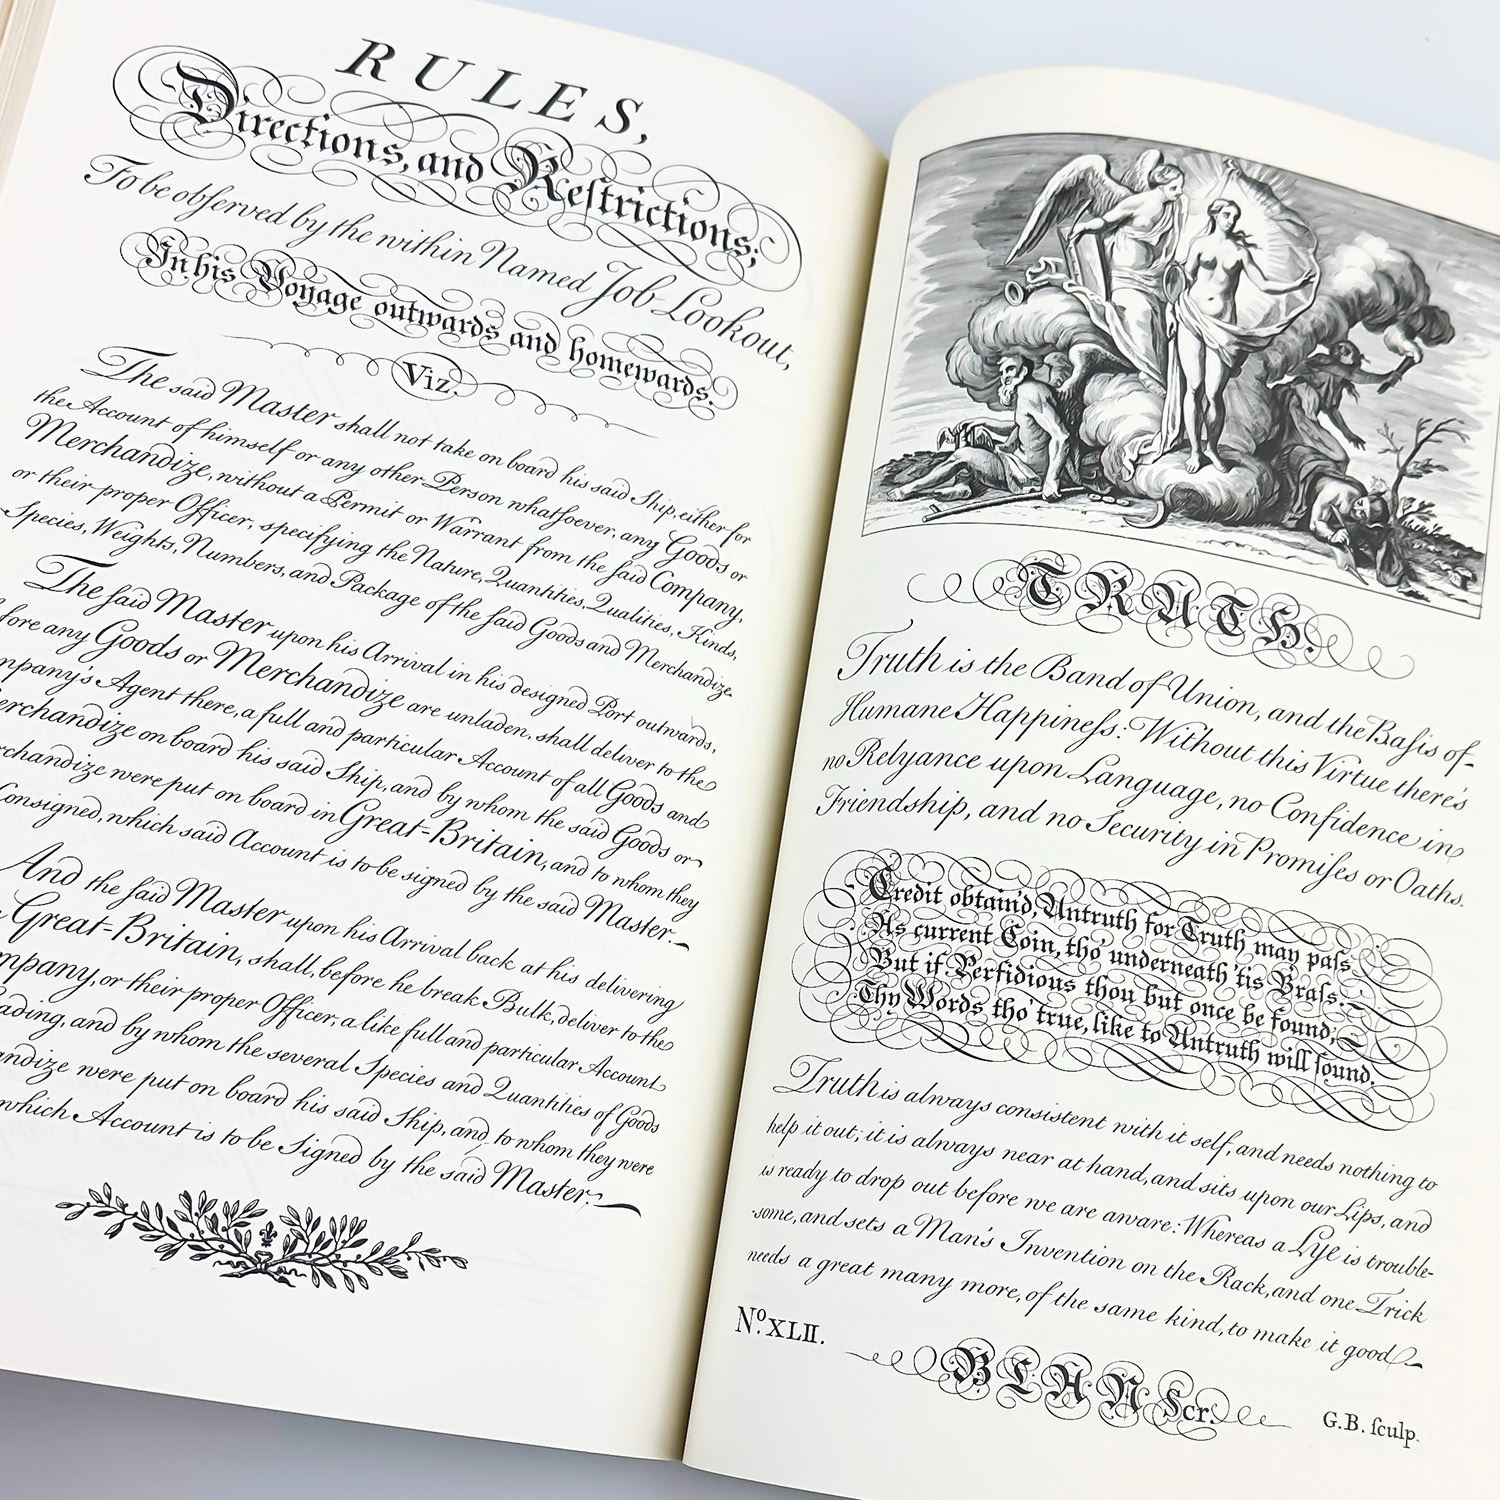 RULES,
Directions, and Reſtrictions;
To be obſerved by the within Named Job Lookout,
In his Voyage outwards and homewards.
Viz.
The said Master shall not take on board his said Ship, either for
the Account of himself or any other Person whatſoever, any Goods or
Merchandize, without a Permit or Warrant from the ſaid Company,
or their proper Officer, specifying the Nature, Quantities, Qualities, Kinds,
Species, Weights, Numbers, and Package of the ſaid Goods and Merchandize.
The ſaid Master upon his Arrival in his designed Port outwards,
fore any Goods or Merchandize are unladen, shall deliver to the
mpany's Agent there, a full and particular Account of all Goods and
erchandize on board his said Ship, and by whom the said Goods or
rchandize were put on board in Great=Britain, and to whom they
Consigned, which said Account is to be signed by the said Master.
And the ſaid Master upon his Arrival back at his delivering
Great=Britain, shall, before he break Bulk, deliver to the
mpany, or their proper Officer, a like full and particular Account
ading, and by whom the several Species and Quantities of Goods
andize were put on board his said Ship, and to whom they were
which Account is to be Signed by the said Master.
TRUTH.
Truth is the Band of Union, and the Baſis of
Humane Happineſs: Without this Virtue there's
no Relyance upon Language, no Confidence in
Friendship, and no Security in Promiſes or Oaths.
Credit obtain'd, Untruth for Truth may paſs
As current Coin, tho' underneath 'tis Braſs:
But if Perfidious thou but once be found,
Thy Words tho' true, like to Untruth will ſound.
Truth is always consistent with it self, and needs nothing to
help it out; it is always near at hand, and sits upon our Lips, and
is ready to drop out before we are aware: Whereas a Lye is trouble-
-some, and sets a Man's Invention on the Rack, and one Trick
needs a great many more, of the same kind, to make it good.
No. XLII.
BLAND Scr.
G.B. ſculp.